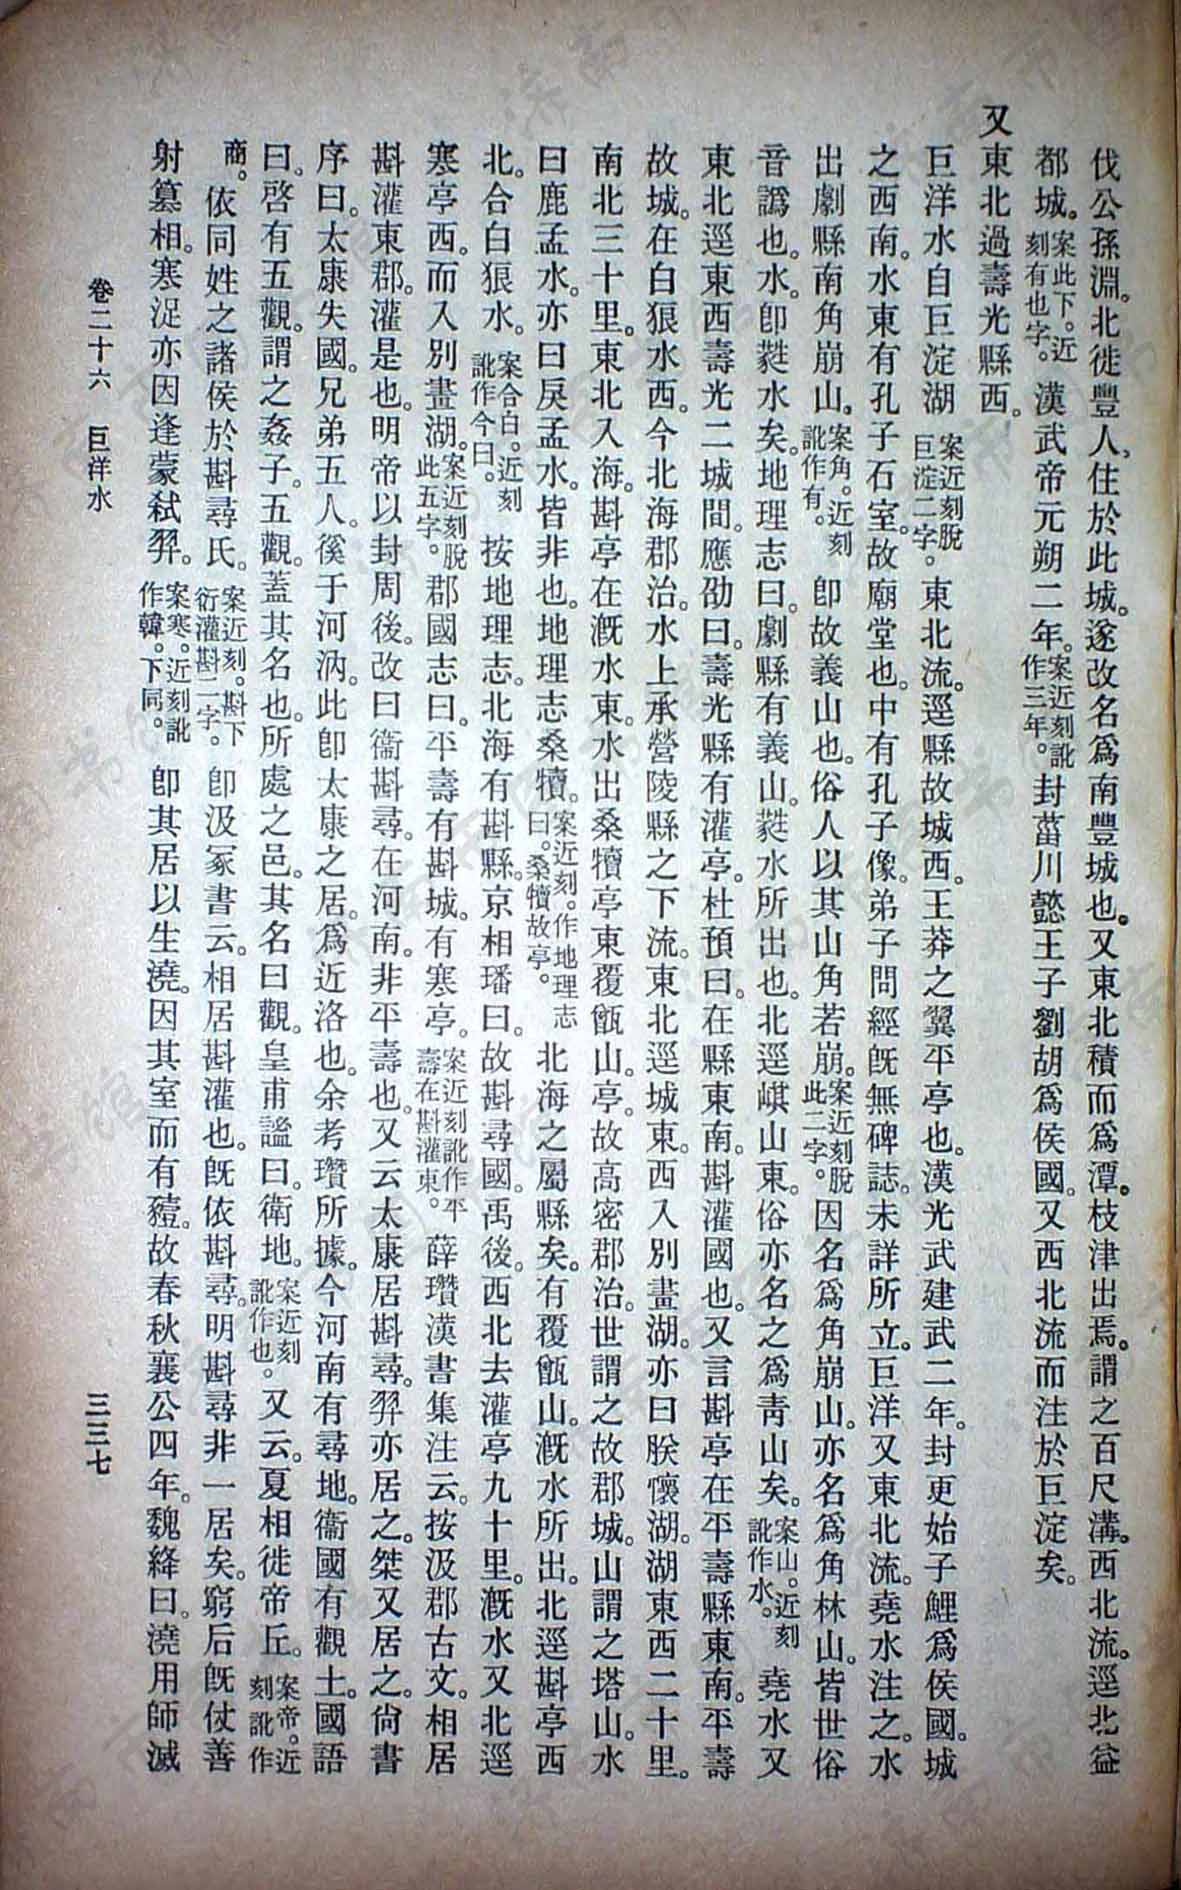 伐公孫淵。北徙豐人。住於此城。遂改名爲南豐城也。又東北積而爲潭。枝津出焉。謂之百尺溝。西北流。逕北益
都城。案此下。近刻有也字。漢武帝元朔二年。案近刻訛作三年。封菑川懿王子劉胡爲侯國。又西北流而注於巨淀矣。
又東北過壽光縣西。
巨洋水自巨淀湖案近刻脫巨淀二字。東北流。逕縣故城西。王莽之翼平亭也。漢光武建武二年。封更始子鯉爲侯國。城
之西南。水東有孔子石室。故廟堂也。中有孔子像。弟子問經既無碑誌。未詳所立。巨洋又東北流。堯水注之。水
出劇縣南角崩山。案角。近刻訛作有。卽故義山也。俗人以其山角若崩。案近刻脫此二字。因名爲角崩山。亦名爲角林山。皆世俗
音譌也。水。卽蕤水矣。地理志曰。劇縣有義山。蕤水所出也。北逕㟓山東。俗亦名之爲青山矣。案山。近刻訛作水。堯水又
東北逕東西壽光二城間。應劭曰。壽光縣有灌亭。杜預曰。在縣東南。斟灌國也。又言斟亭在平壽縣東南。平壽
故城。在白狼水西。今北海郡治。水上承營陵縣之下流。東北逕城東。西入別畫湖。亦曰朕懷湖。湖東西二十里。
南北三十里。東北入海。斟亭在溉水東。水出桑犢亭東覆甑山。亭。故高密郡治。世謂之故郡城。山謂之塔山。水
曰鹿孟水。亦曰戾孟水。皆非也。地理志桑犢。案近刻。作地理志曰。桑犢故亭。北海之屬縣矣。有覆甑山。溉水所出。北逕斟亭西
北。合白狼水。案合白。近刻訛作今曰。按地理志。北海有斟縣。京相璠曰。故斟尋國。禹後。西北去灌亭九十里。溉水又北逕
寒亭西。而入別畫湖。案近刻脫此五字。郡國志曰。平壽有斟城。有寒亭。案近刻訛作平壽在斟灌東。薛瓚漢書集注云。按汲郡古文。相居
斟灌東郡。灌是也。明帝以封周後。改曰衞斟尋。在河南。非平壽也。又云太康居斟尋。羿亦居之。桀又居之。尙書
序曰。太康失國。兄弟五人。徯于河汭。此卽太康之居。爲近洛也。余考瓚所據。今河南有尋地。衞國有觀土。國語
曰。啓有五觀。謂之姦子。五觀。蓋其名也。所處之邑。其名曰觀。皇甫謐曰。衛地。案近刻訛作也。又云。夏相徙帝丘。案帝。近刻訛作
商。依同姓之諸侯於斟尋氏。案近刻。斟下衍灌斟二字。卽汲冢書云。相居斟灌也。旣依斟尋。明斟尋非一居矣。窮后旣仗善
射簒相。寒浞亦因逢蒙弒羿。案寒。近刻訛作韓。下同。卽其居以生澆。因其室而有豷。故春秋襄公四年。魏絳曰。澆用師滅
卷二十六　巨洋水
三三七